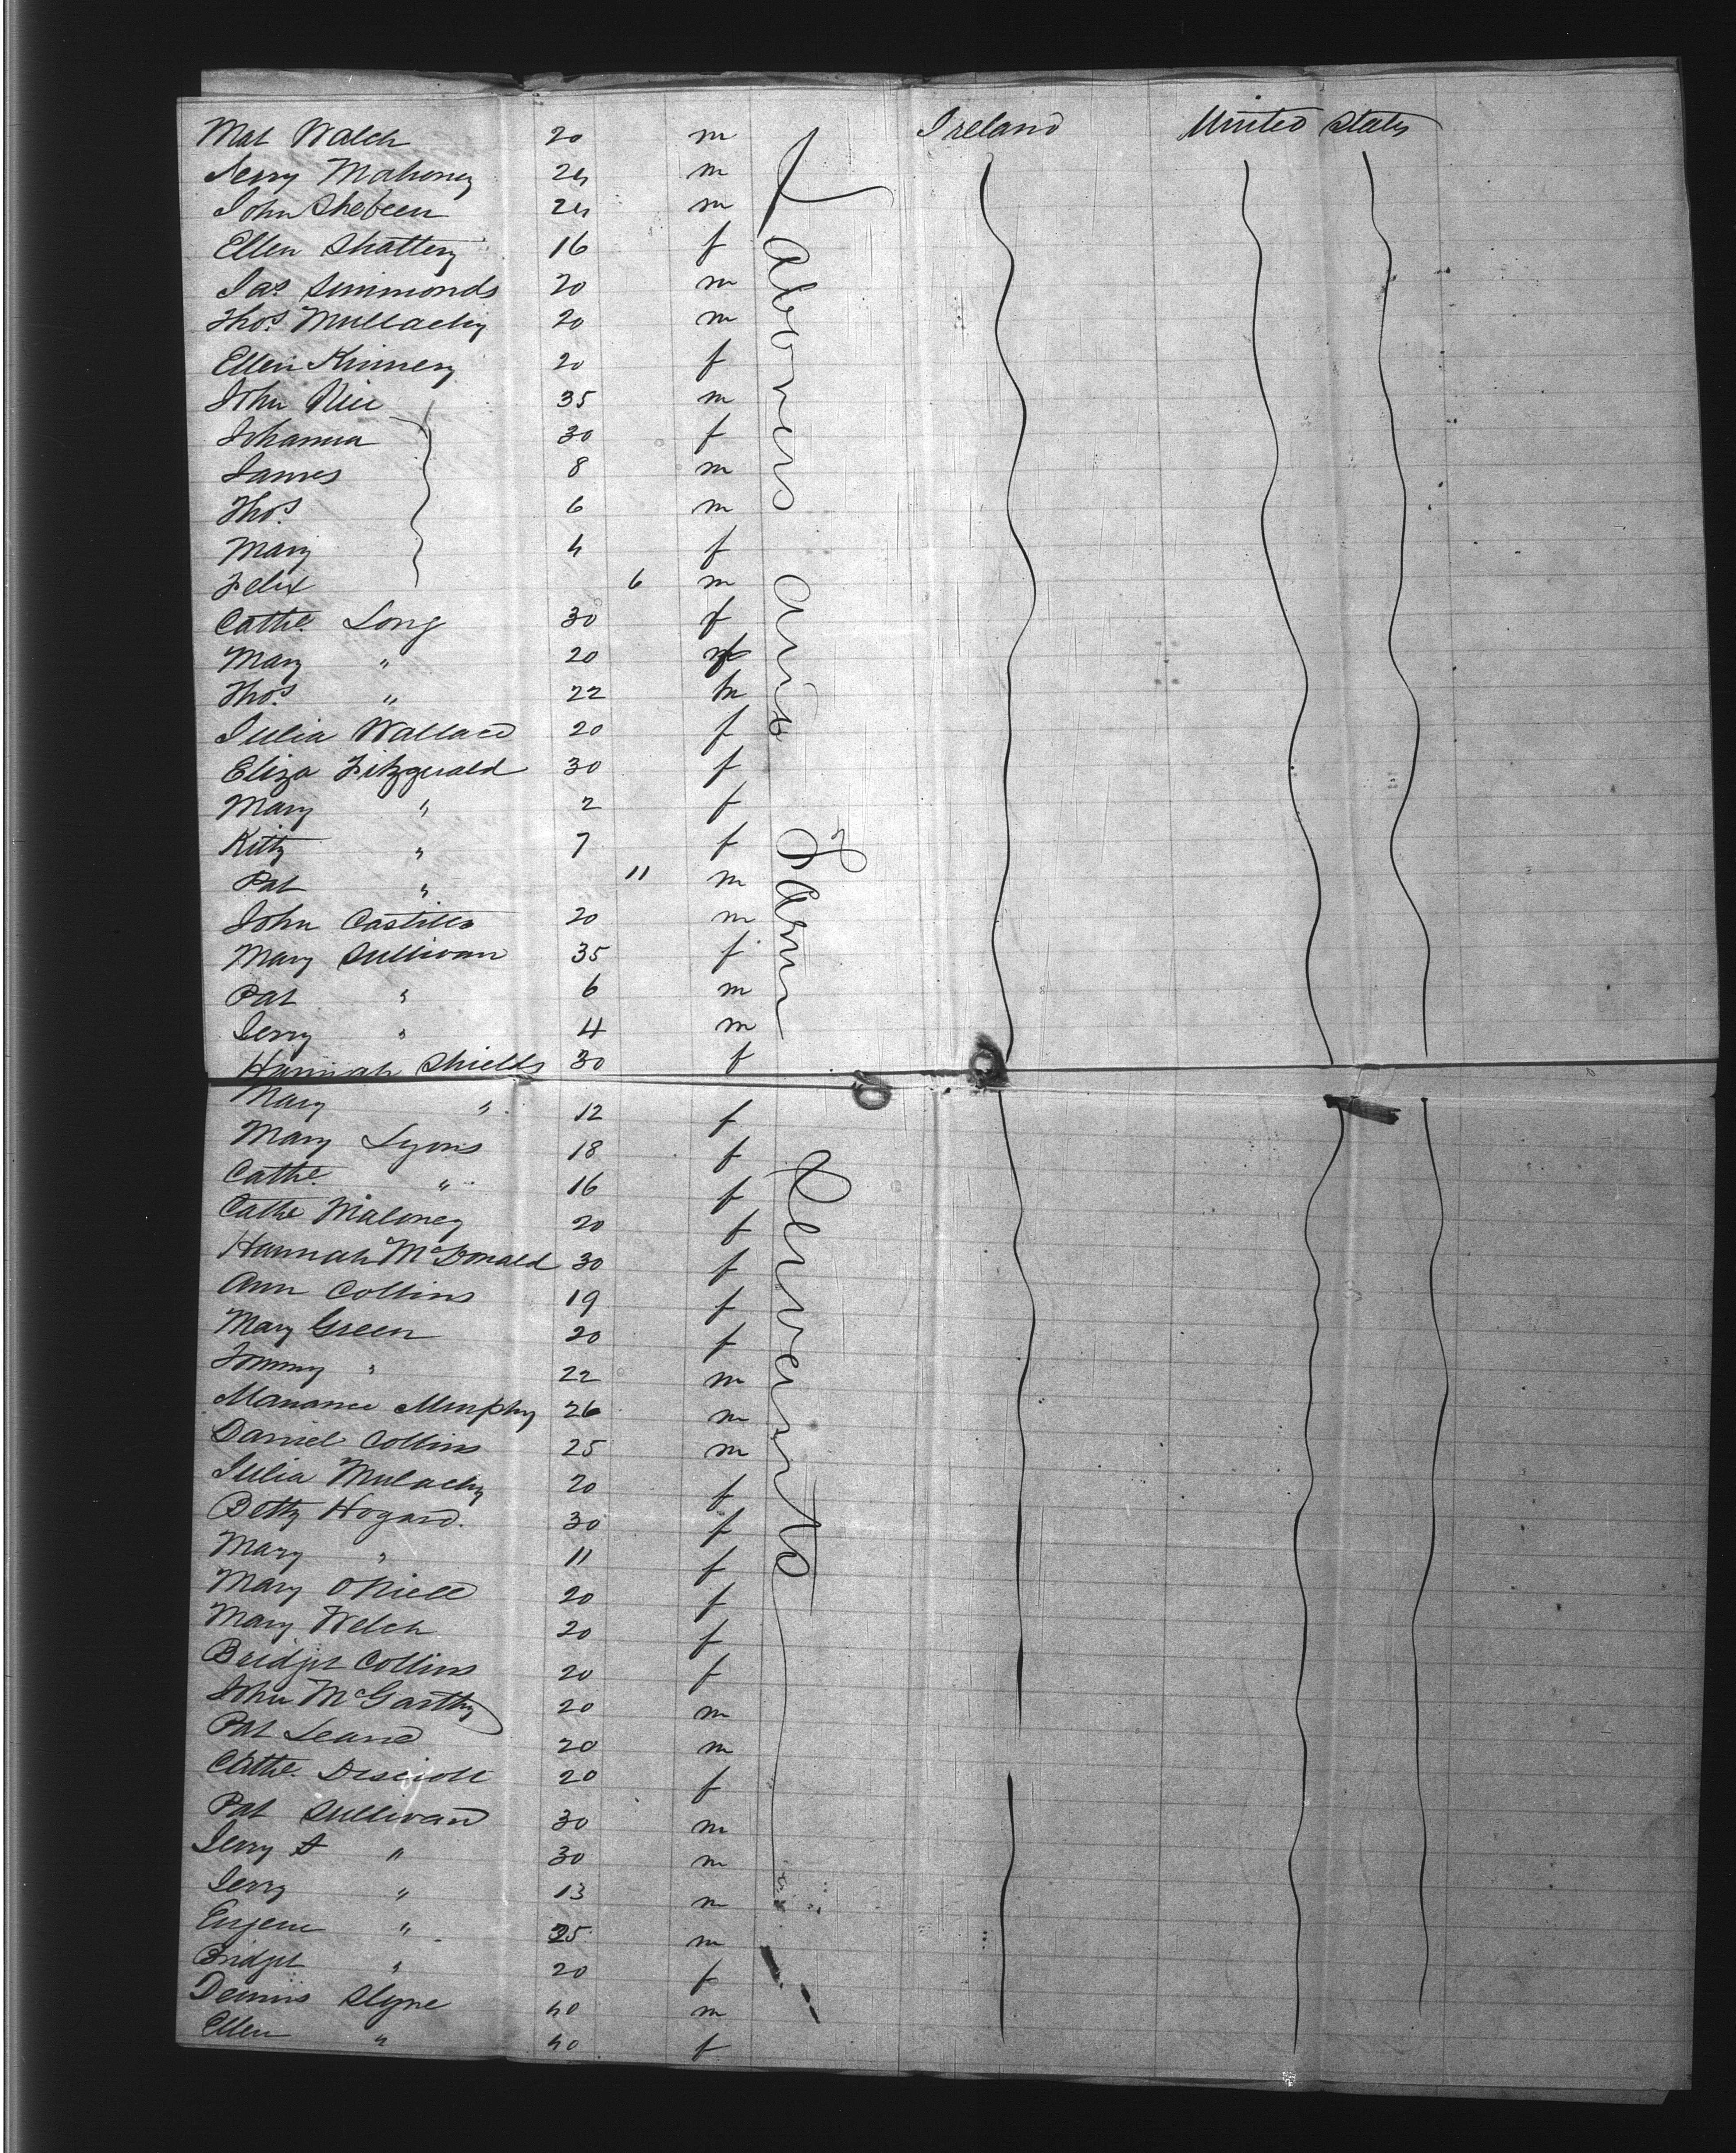 Mat Walch 20 m Ireland United States
Jerry Mahoney 24 m
John Sheteen 24 m
Ellen Shattery 16 f
Jas. Simmonds 20 m
Thos. Mullachy 20 m
Ellen Kinnery 20 f
John Nice 35 m
Johanna 30 f
James 8 m
Thos. 6 m
Mary 4 f
Felix 6 m
Cathe. Long 30 f
Mary " 20 f
Thos. " 22 m
Julia Wallace 20 f
Eliza Fitzgerald 30 f
Mary " 2 f
Kitty " 7 f
Pat " 11 m
John Castillo 20 m
Mary Sullivan 35 f
Pat " 6 m
Jerry " 4 m
Hannah Shields 30 f
Mary " 12 f
Mary Lyons 18 f
Cathe. " 16 f
Cathe Maloney 20 f
Hannah McDonald 30 f
Ann Collins 19 f
Mary Green 20 f
Tommy " 22 m
Murphy 26 m
Daniel Collins 25 m
Julia Mulachy 20 f
Betty Hogard. 30 f
Mary " 11 f
Mary ONiell 20 f
Mary Welch 20 f
Bridget Collins 20 f
John McGarthy 20 m
Pat Leand 20 m
Cathe. Discioll 20 f
Pat Sullivan 30 m
Jerry S " 30 m
Jerry " 13 m
Eugene " 25 m
Bridget " 20 f
Dennis Slyne 40 m
Ellen " 40 f
Laborers and Farm
Servants